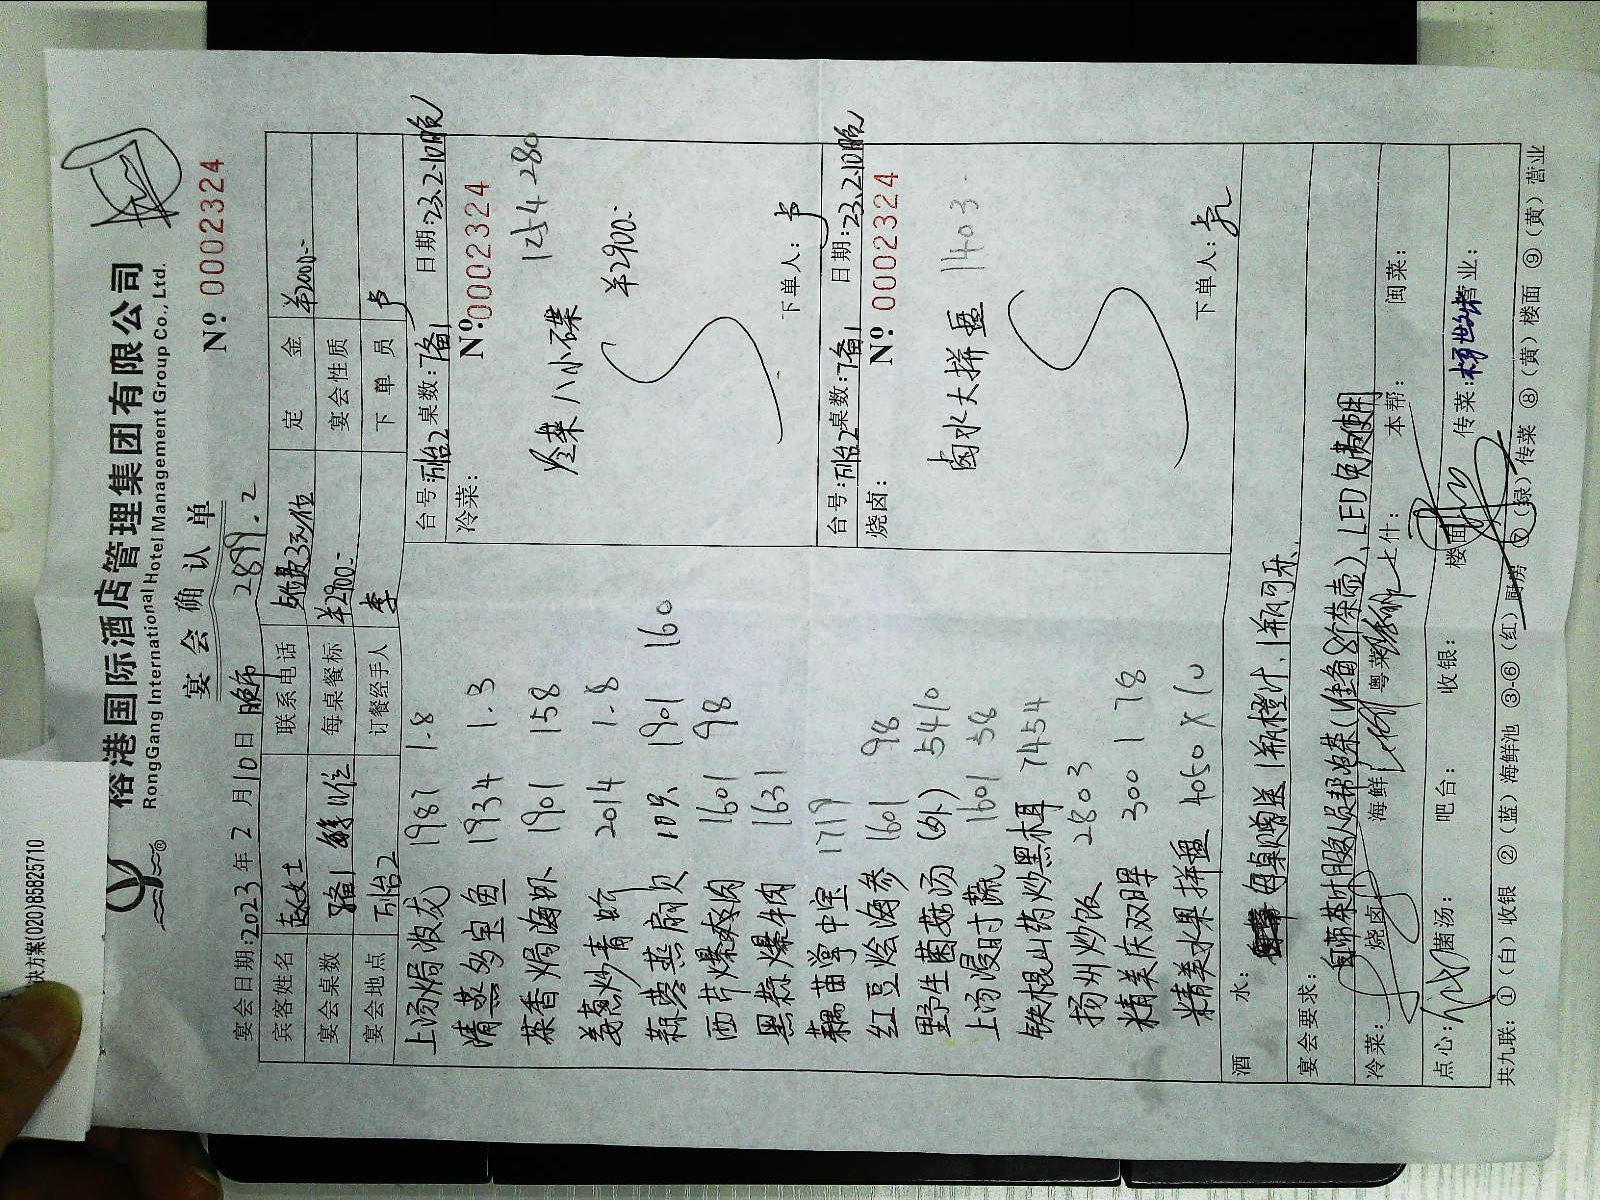 决方案(020)85825710
裕港国际酒店管理集团有限公司
RongGang International Hotel Management Group Co., Ltd.
宴会确认单
Nº 0002324
宴会日期:2023年2月10日 晚市 2899.2
宾客姓名 联系电话 定金 ¥2000.-
宴会桌数 每桌餐标 ¥2900.- 宴会性质
宴会地点 订餐经手人 李 下单员 卢
上汤焗波龙 1987 1.8
清蒸多宝鱼 1934 1.3
茶香焗海虾 1901 158
姜葱炒青蛤 2014 1.8
蒜蓉蒸扇贝 10只 1901 160
西片爆爽肉 1601 98
黑蒜爆牛肉 1631
藕苗掌中宝 1719
红豆烩海参 1601 98
野生菌菇汤(外) 5410
上汤浸时蔬 1601 58
铁棍山药炒黑木耳 7454
扬州炒饭 2803
精美庆双晖 300 1 78
精美水果拼盘 4050 X 10
台号: 桌数:7备1 日期:23.2.10晚
冷菜: Nº:0002324
冷菜八小碟 1254 280
¥2900.-
下单人:卢
台号: 桌数:7备1 日期:23.2.10晚
烧卤: Nº:0002324
卤水大拼盘 1403
下单人:
酒水: 每桌赠送1瓶橙汁、1瓶可乐
宴会要求: 自带茶叶服务员帮泡茶(准备8个茶壶)、LED免费使用
冷菜: 烧卤: 海鲜: 粤菜: 七什: 本帮: 闽菜:
点心: 菌汤: 吧台: 收银: 楼面: 传菜: 营业:
共九联:①(白)收银 ②(蓝)海鲜池 ③-⑥(红)厨房 ⑦(绿)传菜 ⑧(黄)楼面 ⑨(黄)营业